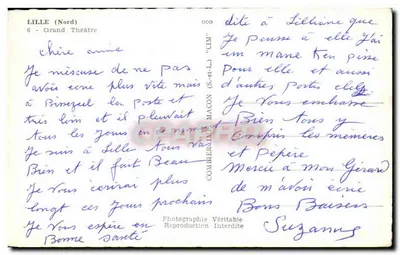 LILLE (Nord)
6 - Grand Théâtre
chère amie
Je m'escuse de ne pas
avoir ecrie plus vite mais
à la poste et
très loin et il pleuvait
tous les Jours
Je suis à Lille tous vas
Bien et il fait Beau
Je Vous ecrirai plus
longt ces Jours prochain
Je Vous espère en
Bonne santé
COMBIER MACON (S.-et-L.) "CIM"
dite à Lilliane que
Je pense à elle J'ai
un
pour elle et aussi
d'autres
Je Vous embrasse
Bien tous y
compris les memères
et Pépère
Merci à Mon Gérard
de m'avoir ecrie
Bons Baisers
Suzanne
Photographie Véritable
Reproduction Interdite